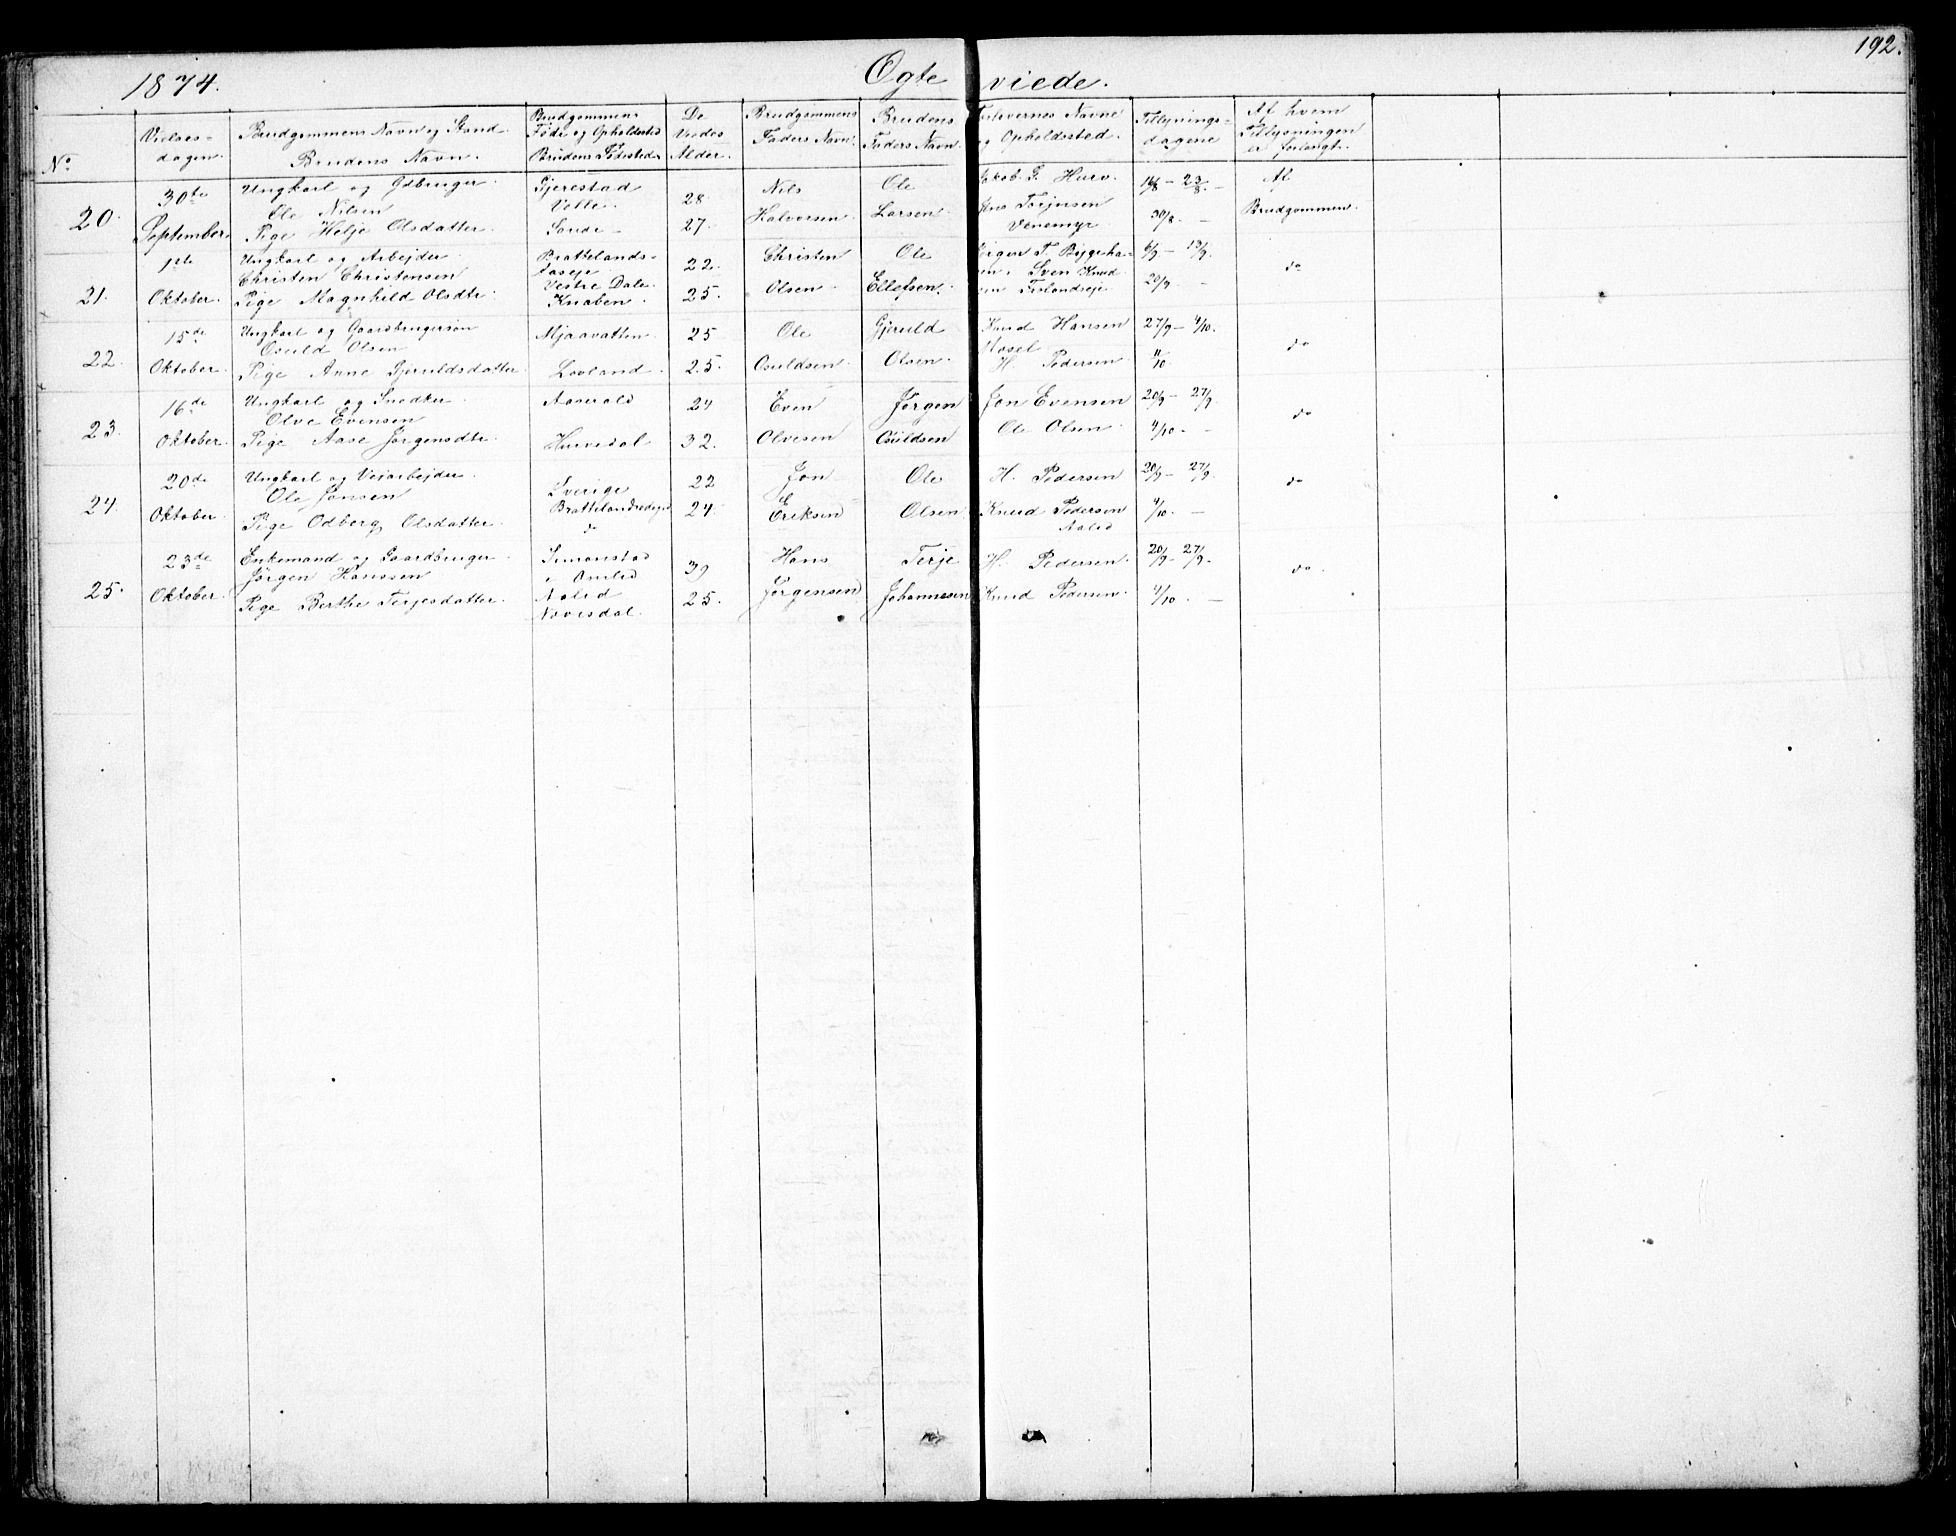 192.
1874. Ægteviede.
No
Vielses-dagen.
Brudgommens Navn og Stand.
Brudens Navn.
Brudgommens Føde og Opholdssted
Brudens Fødested
De Viedes Alder.
Brudgommens Faders Navn.
Brudens Faders Navn.
Forlovernes Navne og Opholdssted.
Tillysnings-dagene
Af hvem Tillysningen er forlangt.
20. 30te September. Ungkarl og Gdbruger Gjerestad 28 Nils Ole Jakob G. Hurv. 16/8 - 23/8. - Af
Ole Nilsen Valle. Halvorsen. Larsen. Jens Torjusen 30/8. - Brudgommen.
Pige Helje Olsdatter. Sande - 27. Venemyr
21. 1ste Oktober. Ungkarl og Arbejder Brattelands- 22. Christen Ole T. Byggeha- 6/9 - 13/9. do
Christen Christensen aaseje Olsen Ellefsen. Sven Knud
Pige Magnhild Olsdtr. Vestre Dale 25. Fislandseje 20/9 -
Knaben.
22. 15de Oktober. Ungkarl og Gaardbrugersøn Mjaavatten 25 Ole Gjeruld Knud Hansen 27/9 - 4/10. do
Osuld Olsen Mosel
Pige Anne Gjeruldsdatter Lovland. 25. Osuldsen Olsen. H. Pedersen 11/10
23. 16de Oktober. Ungkarl og Snedker Aaserald 24 Even Jørgen Jon Evensen 20/9 - 27/9. do
Olve Evensen
Pige Aase Jørgensdtr. Hurvedal 32. Olvesen Osuldsen Ole Olsen. 4/10. -
24. 20de Oktober. Ungkarl og Vejarbejder Sverige 22 Jon Ole H. Pedersen 20/9 - 27/9. do
Ole Jonsen
Pige Odborg Olsdatter. do 24. Eriksen Olsen. Knud Pedersen 4/10. -
Aalid
25. 23de Oktober. Enkemand og Gaardbruger Simonstad 39 Hans Terje H. Pedersen. 20/9 - 27/9. do.
Jørgen Hanssen i Omlid
Pige Berthe Terjesdatter. Aalid 25. Jørgensen Johannesen Knud Pedersen. 4/10. -